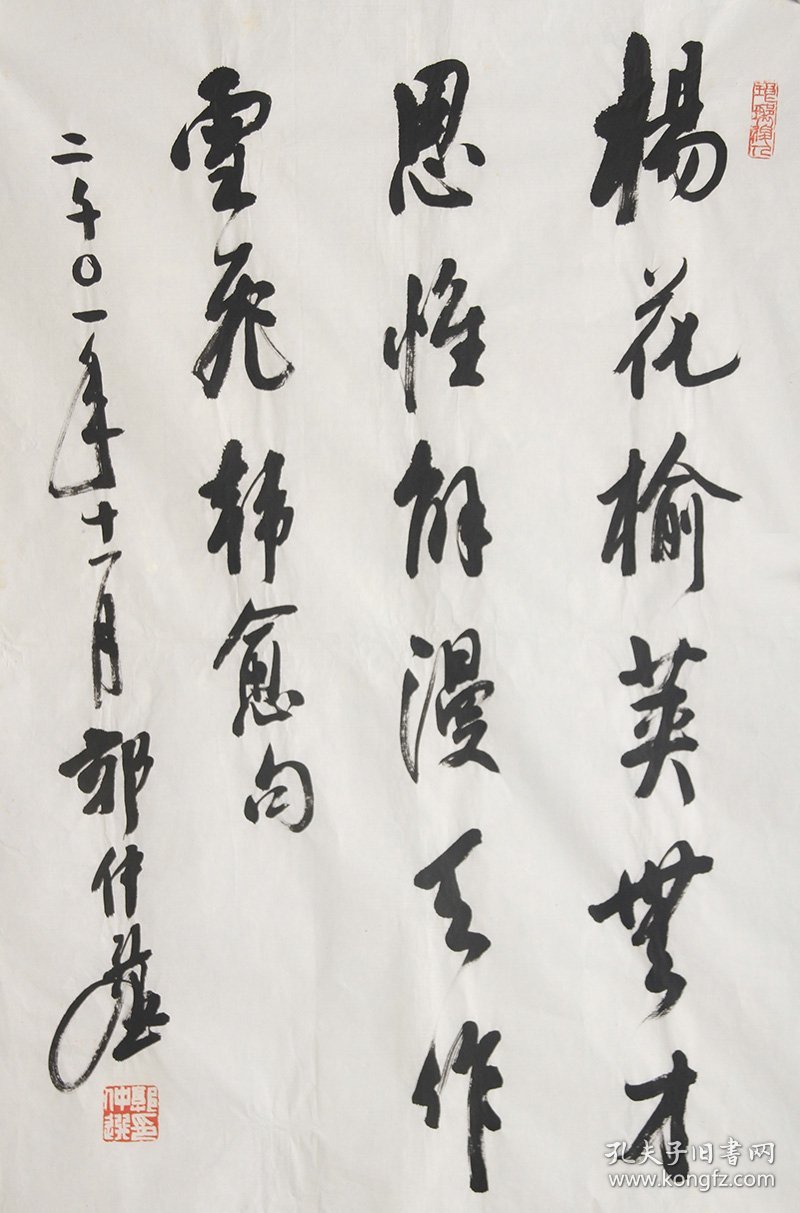 楊花榆莢無才
思惟解漫天作
雪飛韩愈句
二千〇一年十一月郭仲選
郭印
仲選
孔夫子旧書网
www.kongfz.com